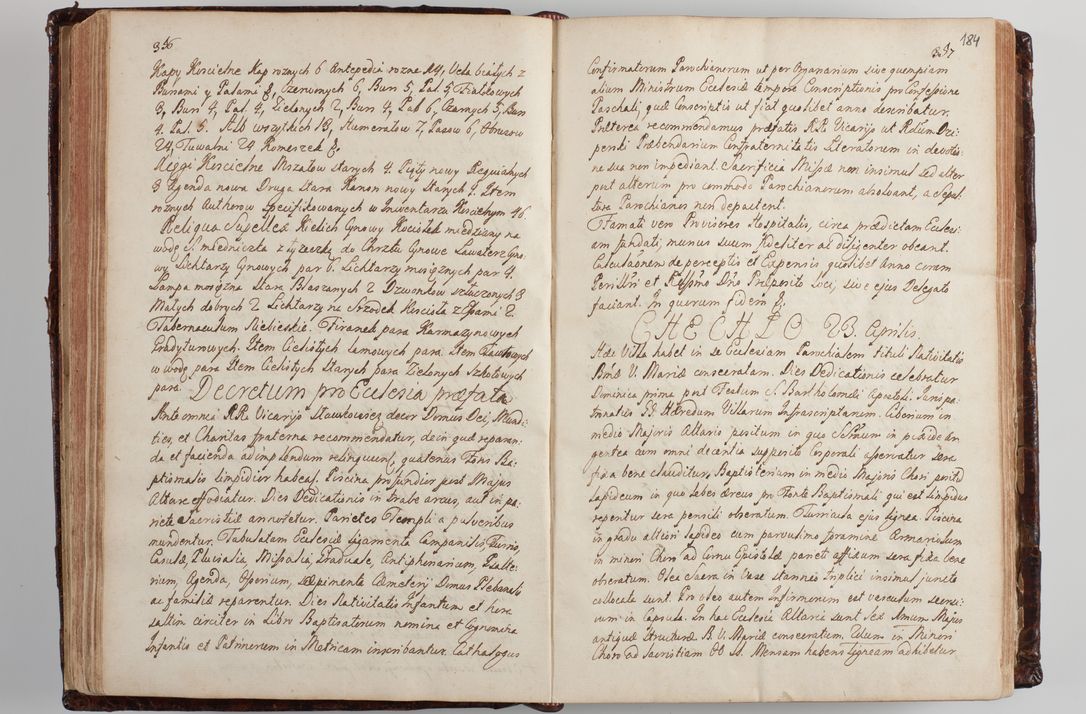 336
Kapy Koscielne Kap roznych 6 Antepedia rozne 14, Vela białych z
Bursami y Palami 8, Czerwonych 6, Burs 5, Pal. 5, Fialkowych
3, Burs 4, Pal. 4, Zielonych 2, Burs 4, Pal 6, Czarnych 5, Burs
4. Pal. 5. Alb wszytkich 18, Humerałow 7, Pasow 6, Obrusow
24, Tuwalni 24 Komeszek 8.
Xięgi Koscielne Mszałow starych 4. Piąty nowy Requialnych
3 Agenda nowa Druga stara Kanon nowy starych 2. Item
roznych Authorow specifikowanych w Inwentarzu Koscielnym 46.
Reliqua Supellex Kielich Cynowy Kociołek miedziany na
wodę S. miedniczka z łyzeczką do Chrztu Cynowe Lawaterz Cyno-
wy Lichtarzy Cynowych par 6. Lichtarzy mosięznych par 4.
Lampa mosięzna stara Blaszanych 2 Dzwonkow sztuczonych 3
Małych dobrych 2 Lichtarzy na Srzodek Kosciola z Psami 2
Tabernaculum Niebieskie. Firanek para Karmazynowych
Gradyturowych. Item Cielistych Lamowych para. Item Czwalowych
w wodę para Item Cielistych Starych para Zielonych Szkotowych
para. Decretum pro Ecclesia præfata
Ante omnia R.R. Vicarijs decor Domus Dei, Mundi-
ties, et Charitas fraterna recommendatur, dein quæ reparan-
da et facienda adimplendum relinquunt, quatenus Fons Ba-
ptismalis limpidior habeas. Piscina profundior post Majus
Altare effodiatur. Dies Dedicationis in trabe arcus, aut in pa-
riete Sacristiæ annotetur. Parietes Templi a pulveribus
mundentur. Tabulatam Ecclesiæ ligamenta Campanilis, Turris,
Casulæ, Pluvialia, Missalia, Graduale, Antiphonarium, Psalte-
rium, Agenda, Ciborium, sæpimenta Cæmeterij Domus Plebanalis
ac familiæ reparentur. Dies Nativitatis Infantum et hora
saltim circiter in Libro Baptisatorum nomina et Cognomina
Infantis et Patrinorum in Metricam inscribantur. Cathalogus
337
184
Confirmatorum Parochianorum ut per Organarium sive quempiam
alium Ministrum Ecclesiæ tempore Conscriptionis pro Confessione
Paschali, quæ Conscriptio ut fiat quolibet anno describatur.
Præterea recommendamus præfatis R.R. Vicarijs ut Rdum
Præbendarium Confraternitatis Literatorum in devotio-
ne sua non impediant. Sacrificia Missæ non insimul sed alter
post alterum pro commodo Parochianorum absolvant, a Sepul-
tura Parochianos non depactent.
Famati vero Provisores Hospitalis, circa prædictam Ecclesi-
am fundati, munus suum fideliter ac diligenter obeant.
Calculationem de perceptis et Expensis quolibet Anno coram
Perillri et Rdssimo Dno Præposito Loci, sive ejus Delegato
faciant. In quorum fidem &.
CHECHŁO 23. Aprilis.
Hæc Villa habet in se Ecclesiam Parochialem tituli Nativitatis
Bmæ V. Mariæ consecratam. Dies Dedicationis celebratur
Dominica prima post Festum S. Bartholomæi Apostoli. Juris pa-
tronatus Hæredum Villarum Infrascriptarum. Ciborium in
medio Majoris Altaris positum in quo SSmum in pixide ar-
gentea cum omni decentia supposito Corporali asservatur sera
fixa bene clauditur, Baptisterium in medio Majoris Chori positū
lapideum in quo lebes æreus pro Fonte Baptismali qui est limpidus
reperitur sera pensili obseratum. Turricula ejus lignea. Piscina
in gradu altiori lapideo cum parvulimo foramine Armariolum
in minori Choro ad Cornu Epistolæ parieti affixum sera fixa bene
obseratum. Olea Sacra in Vase stanneo Triplici insimul juncto
collocata sunt. Pro oleo autem Infirmorum est vasculum seorsi-
vum in Capsula. In hac Ecclesia Altaria sunt Sex Amum Majus
antiquæ structuræ B. V. Mariæ consecratum. 2dum in Minori
Choro ad Sacristiam OO SS. Mensam habens ligneam adhibetur